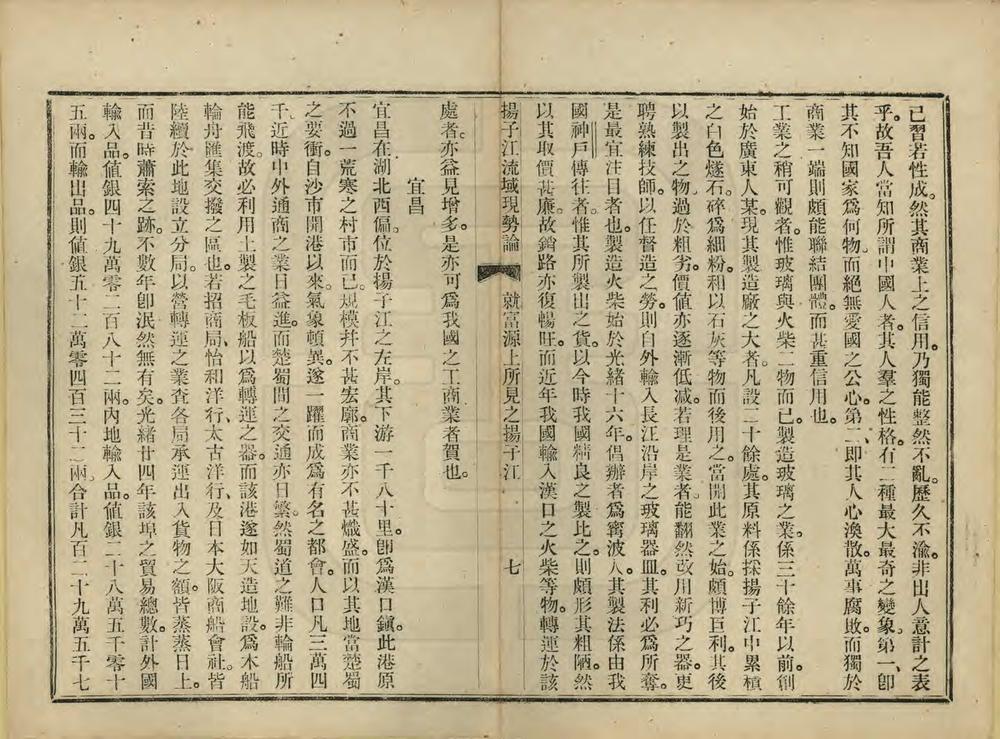 已習若性成然其商業上之信用乃獨能整然不亂歷久不渝非出人意計之表
乎故吾人當知所謂中國人者其人羣之性格有二種最大最奇之變象第一、卽
其不知國家爲何物而絕無愛國之公心第二、卽其人心渙散萬事腐敗而獨於
商業一端則頗能聯結團體而甚重信用也。
工業之稍可觀者惟玻璃與火柴二物而已製造玻璃之業係三十餘年以前創
始於廣東人某現其製造廠之大者凡設二十餘處其原料係採揚子江中累積
之白色燧石碎爲細粉和以石灰等物而後用之當開此業之始頗博巨利其後
以製出之物過於粗劣價値亦逐漸低减若理是業者能翻然改用新巧之器更
聘熟練技師以任督造之勞則自外輸入長江沿岸之玻璃器皿其利必爲所奪
是最宜注目者也製造火柴始於光緒十六年倡辦者爲寗波人其製法係由我
國神戶傳往者惟其所製出之貨以今時我國精良之製比之則頗形其粗陋然
以其取價甚廉故銷路亦復暢旺而近年我國輸入漢口之火柴等物轉運於該
揚子江流域現勢論　就富源上所見之揚子江　七
處者亦益見增多是亦可爲我國之工商業者賀也。
宜昌
宜昌在湖北西偏位於揚子江之左岸其下游一千八十里卽爲漢口鎭此港原
不過一荒寒之村市而已規模幷不甚宏廓商業亦不甚熾盛而以其地當楚蜀
之要衝自沙市開港以來氣象頓異遂一躍而成爲有名之都會人口凡三萬四
千近時中外通商之業日益進而楚蜀間之交通亦日繁然蜀道之難非輪船所
能飛渡故必利用土製之毛板船以爲轉運之器而該港遂如天造地設爲木船
輪舟匯集交撥之區也若招商局、怡和洋行、太古洋行及日本大阪商船會社皆
陸續於此地設立分局以營轉運之業查各局承運出入貨物之額皆蒸蒸日上
而昔時蕭索之跡不數年卽泯然無有矣光緒廿四年該埠之貿易總數計外國
輸入品値銀四十九萬零二百八十二兩內地輸入品値銀二十八萬五千零十
五兩而輸出品則値銀五十二萬零四百三十二兩合計凡百二十九萬五千七